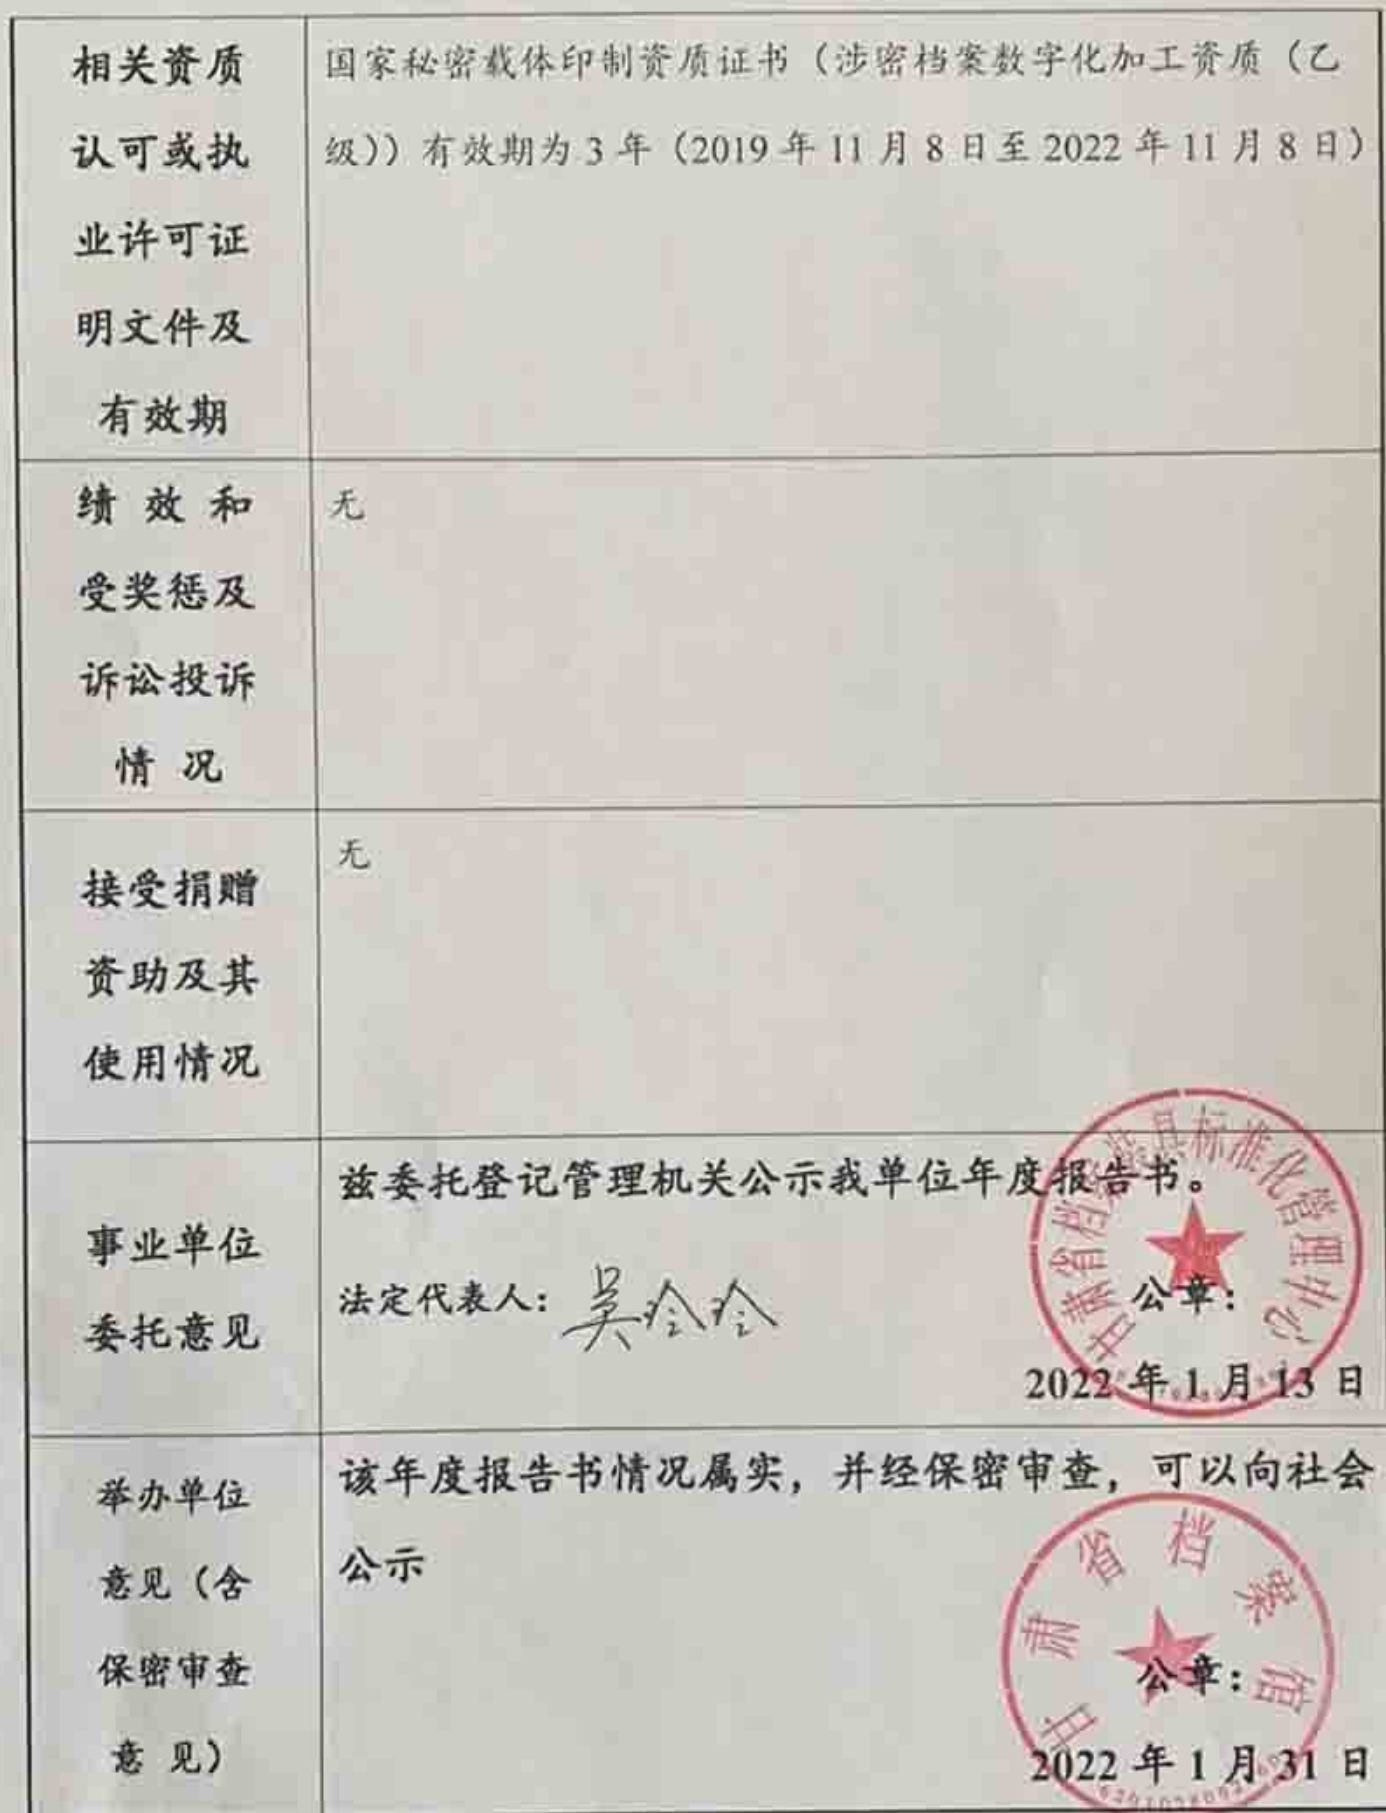 相关资质
认可或执
业许可证
明文件及
有效期
国家秘密载体印制资质证书（涉密档案数字化加工资质（乙
级））有效期为3年（2019年11月8日至2022年11月8日）
绩效和
受奖惩及
诉讼投诉
情况
无
接受捐赠
资助及其
使用情况
无
事业单位
委托意见
兹委托登记管理机关公示我单位年度报告书。
法定代表人：吴玲玲
公章：
2022年1月13日
甘肃省档案装具标准化管理中心
举办单位
意见（含
保密审查
意见）
该年度报告书情况属实，并经保密审查，可以向社会
公示
公章：
2022年1月31日
甘肃省档案馆